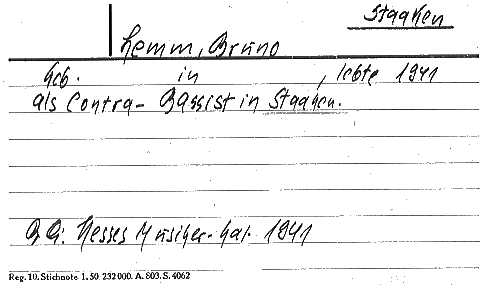 Staaken
Lemm, Bruno
Geb. in , lebte 1941
als Contra-Bassist in Staaken.
QU: Hesses Musiker-Kal. 1941
Reg. 10. Stichnote 1. 50. 232000. A. 803. S. 4062